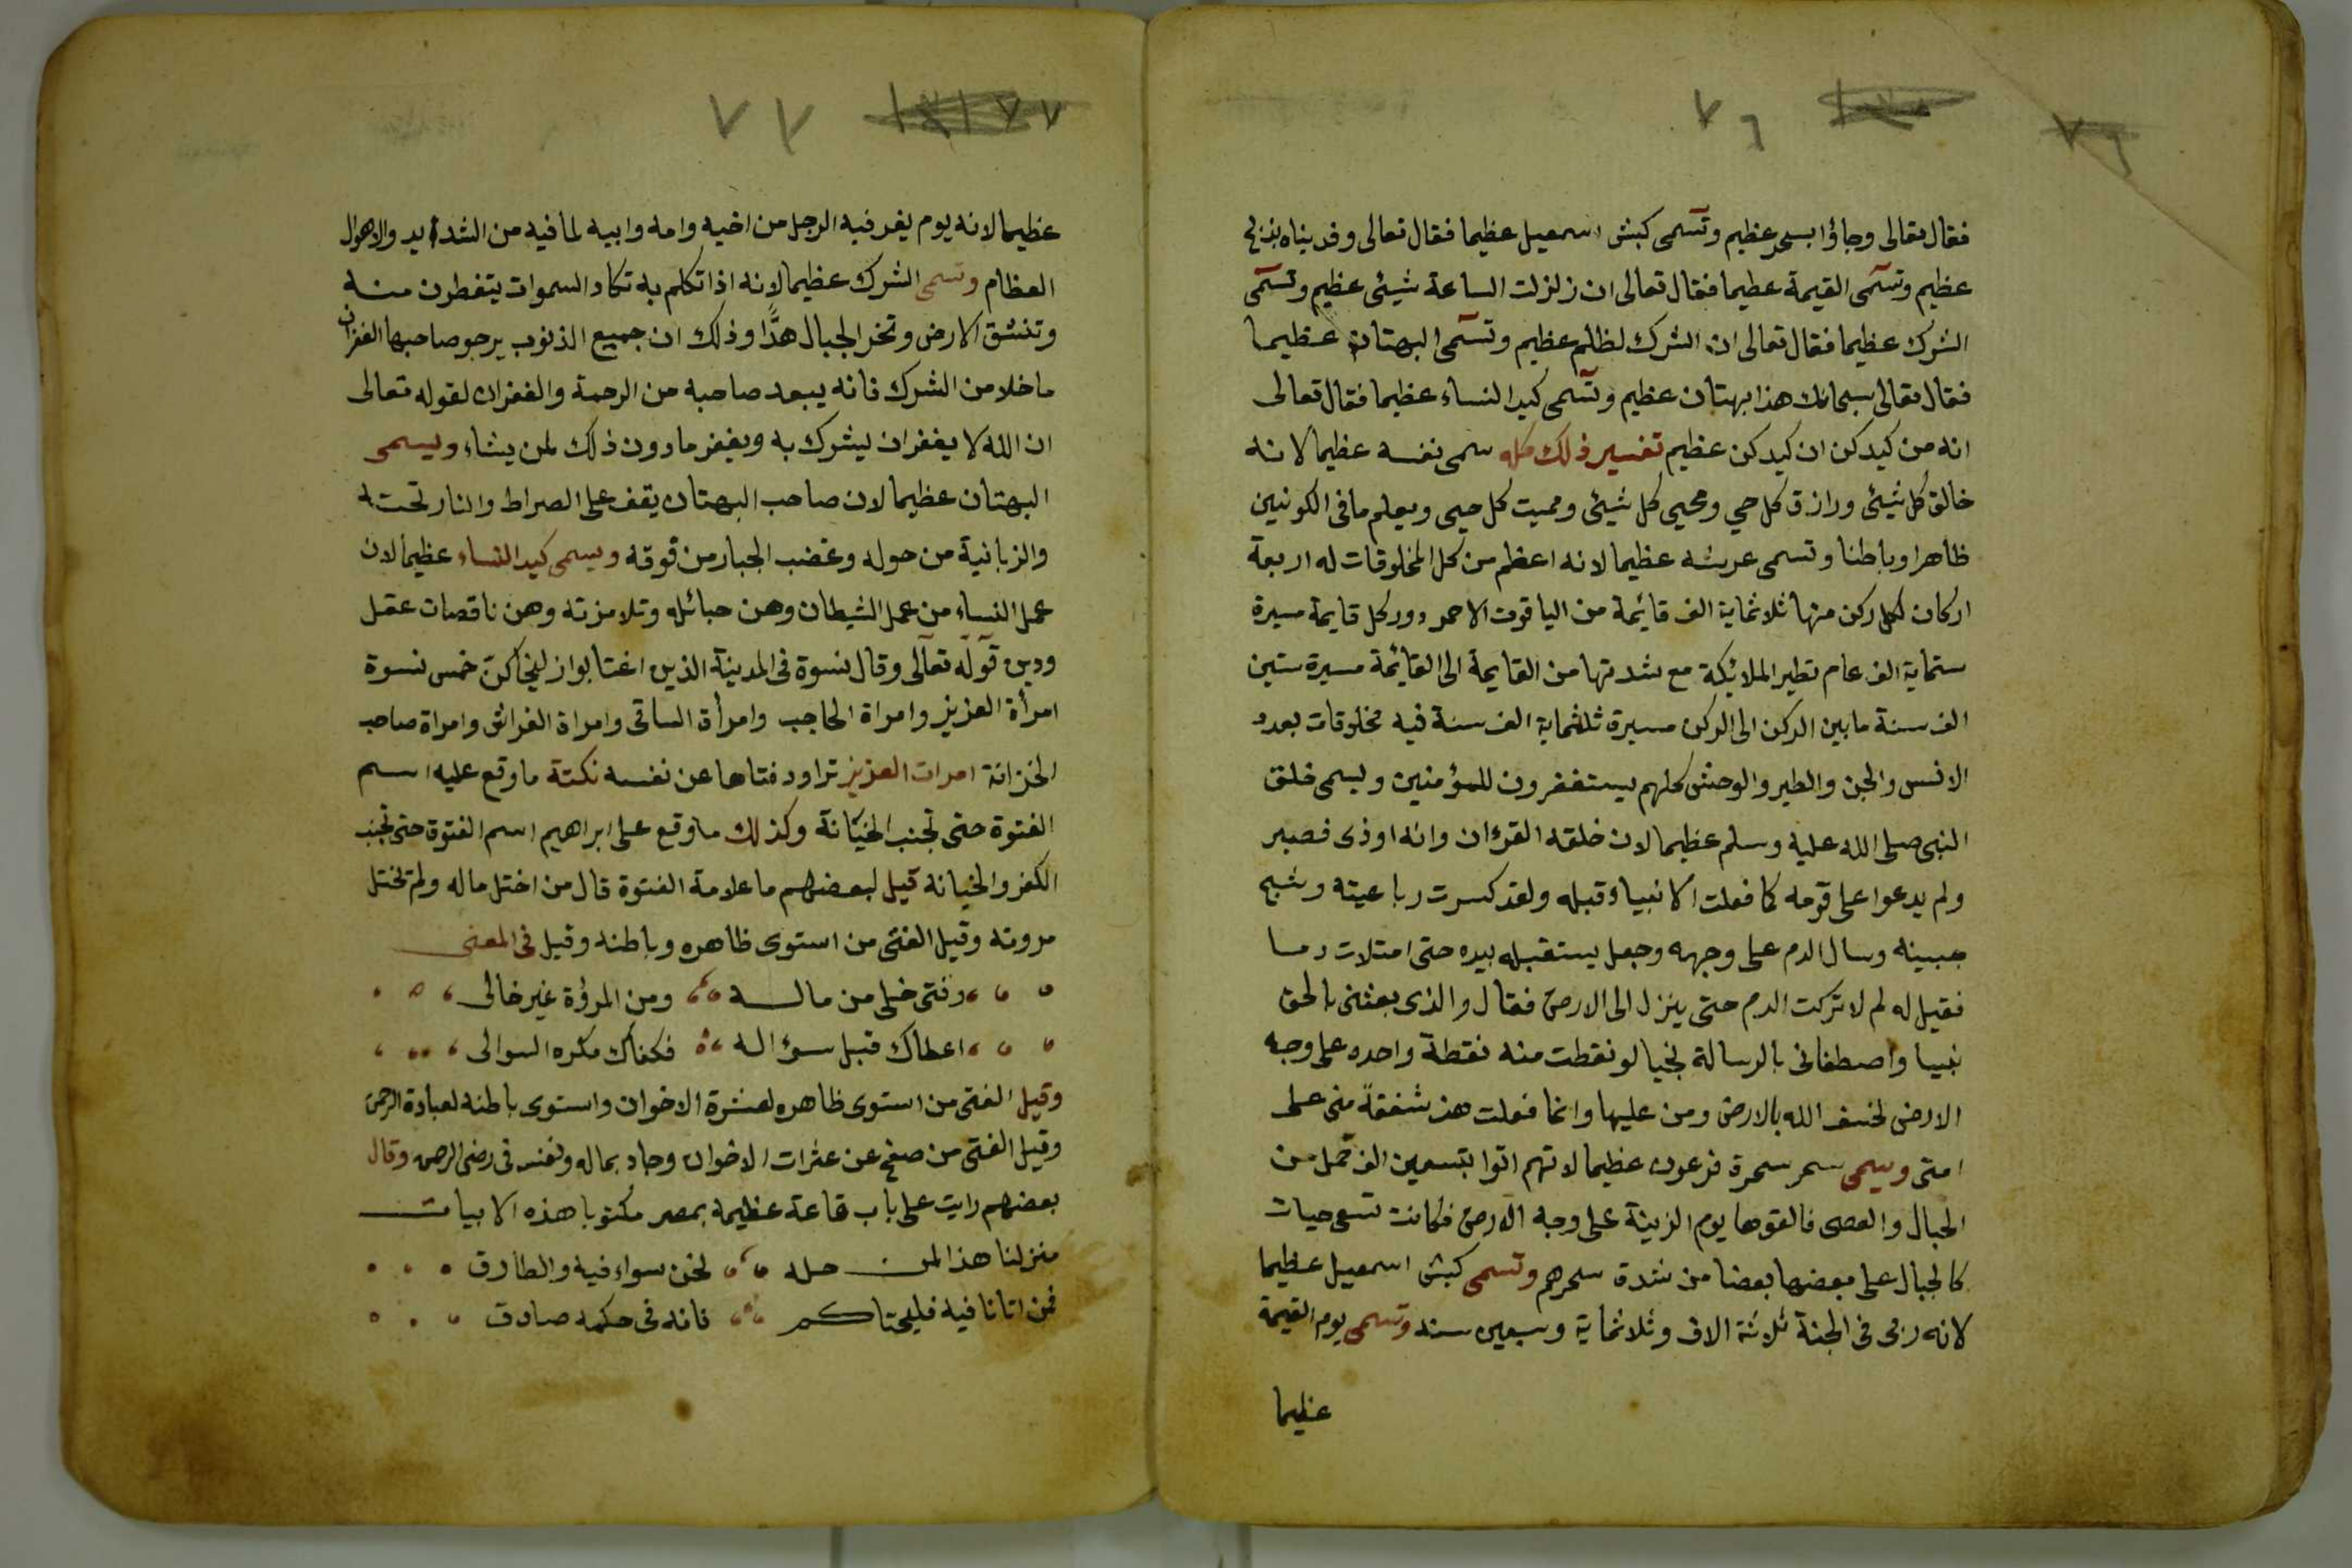 ٧٦
٧٦
فقال تعالى وجاؤا بسحر عظيم وتسمى كبش اسمعيل عظيما فقال تعالى وفديناه بذبح
عظيم وتسمى القيمة عظيما فقال تعالى ان زلزلت الساعة شيئ عظيم وتسمى
الشرك عظيما فقال تعالى ان الشرك لظلم عظيم وتسمى البهتان عظيما
فقال تعالى سبحانك هذا بهتان عظيم وتسمى كيد النساء عظيما فقال تعالى
انه من كيدكن ان كيدكن عظيم تفسير ذلك كله سمى نفسه عظيما لانه
خالق كل شيئ ورازق كل حي ومحيي كل شيئ ومميت كل حيى ويعلم ما فى الكونين
ظاهرا وباطنا وتسمى عرشه عظيما لانه اعظم من كل المخلوقات له اربعة
اركان لكل ركن منها ثلاثماية الف قائمة من الياقوت الاحمر دور كل قايمة مسيرة
ستماية الف عام تطير الملائيكة مع شدتها من القايمة الى القائمة مسيرة ستين
الف سنة ما بين الركن الى الركن مسيرة ثلثماية الف سنة فيه مخلوقات بعدد
الانس والجن والطير والوحش كلهم يستغفرون للمؤمنين ويسمى خلق
النبى صلى الله عليه وسلم عظيما لان خلقه القرءان وانه اوذى فصبر
ولم يدعوا على قومه كما فعلت الانبياء قبله ولقد كسرت رباعيته وشج
جبينه وسال الدم على وجهه وجعل يستقبله بيده حتى امتلات دما
فقيل له لم لا تركت الدم حتى ينزل الى الارض فقال والذى بعثنى بالحق
نبيا واصطفانى بالرسالة نجيا لو نقطت منه نقطة واحده على وجه
الارض لخسف الله بالارض ومن عليها وانما فعلت هذ شفقة منى على
امتى ويسمى سحر سحرة فرعون عظيما لانهم اتوا بتسعين الف حمل من
الحبال والعصى فالقوها يوم الزينة على وجه الارض فكانت تسعى حيات
كالجبال على بعضها بعضا من شدة سحرهم وتسمى كبش اسمعيل عظيما
لانه ربى فى الجنة ثلاثة الاف وثلاثماية وسبعين سنه وتسمى يوم القيمة
عظيما
٧٧
عظيما لانه يوم يفر فيه الرجل من اخيه وامه وابيه لما فيه من الشدايد والاهوال
العظام وتسمى الشرك عظيما لانه اذا تكلم به تكاد السموات يتفطرن منه
وتنشق الارض وتخر الجبال هدًّا وذلك ان جميع الذنوب يرجو صاحبها الغفران
ما خلا من الشرك فانه يبعد صاحبه من الرحمة والغفران لقوله تعالى
ان الله لا يغفر ان يشرك به ويغفر ما دون ذلك لمن يشاء ويسمى
البهتان عظيما لان صاحب البهتان يقف على الصراط والنار تحته
والزبانية من حوله وغضب الجبار من فوقه ويسمى كيد النساء عظيما لان
عمل النساء من عمل الشيطان وهن حبائله وتلامزته وهن ناقصات عقل
ودين قوله تعالى وقال نسوة فى المدينة الذين اغتابوا زليخا كنّ خمس نسوة
امرأة العزيز وامراة الحاجب وامرأة الساقى وامراة الفراش وامراة صاحب
الخزانة امرات العزيز تراود فتاها عن نفسه نكتة ما وقع عليه اسم
الفتوة حتى تجنب الخيانة وكذلك ما وقع على ابراهيم اسم الفتوة حتى تجنب
الكفر والخيانه قيل لبعضهم ما علامة الفتوة قال من اختل ماله ولم تختل
مروته وقيل الفتى من استوى ظاهره وباطنه وقيل فى المعنى
وفتى خلى من ماله ومن المرؤة غير خالى
اعطاك قبل سؤاله فكفاك مكره السوالى
وقيل الفتى من استوى ظاهره لعشرة الاخوان واستوى باطنه لعبادة الرحمن
وقيل الفتى من صفح عن عثرات الاخوان وجاد بماله ونفسه فى رضى الرحمن وقال
بعضهم رايت على باب قاعة عظيمة بمصر مكتوبا هذه الابيات
منزلنا هذا لمن حله نحن سواء فيه والطارق
فمن اتانا فيه فليحتكم فانه فى حكمه صادق